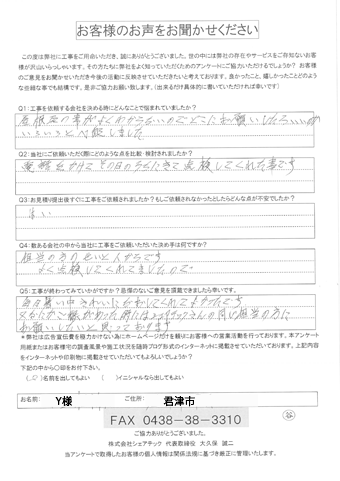 お客様のお声をお聞かせください
この度は弊社に工事をご用命いただき、誠にありがとうございました。世の中には弊社の存在やサービスをご存知ないお客様
が沢山いらっしゃいます。その方たちに弊社をよく知っていただくためのアンケートにご協力いただけるでしょうか? お客様
のご意見をお聞かせいただき今後の活動に反映させていただきたいと考えております。良かったこと、嬉しかったことどのよう
な些細な事でも結構です。是非ご協力お願い致します。(出来るだけ具体的に書いていただければ幸いです)
Q1:工事を依頼する会社を決める時にどんなことで悩まれていましたか?
屋根の事がよくわからないのでどこにお願いしたらいいか
いろいろと
しました
Q2:当社にご依頼いただく際にどのような点を比較・検討されましたか?
電話をかけてその日のうちにきて点検してくれた事です
Q3:お見積り提出後すぐに工事をご依頼されましたか?もしご依頼されなかったとしたらどんな点が不安でしたか?
Q4:数ある会社の中から当社に工事をご依頼いただいた決め手は何ですか?
担当の方の
人がらです
よく点検してくれてましたので
Q5:工事が終わってみていかがですか?忌憚のないご意見を頂戴できましたら幸いです。
毎日暑い中きれいに
してくれてよかったです
又なにか
があった時には
さんの同じ担当の方に
お願いしたいと思っております
*弊社は広告宣伝費を極力かけない為にホームページだけを頼りにお客様への営業活動を行っております。本アンケート
用紙またはお客様宅の調査風景や施工状況を随時ブログ形式でインターネットに掲載させていただいております。上記内容
をインターネットや印刷物に掲載させていただいてもよろしいでしょうか?
下記の中から〇印をお付下さい。
(〇)名前を出してもよい ( )イニシャルなら出してもよい
お名前: Y様 ご住所: 君津市
FAX 0438-38-3310
ご協力ありがとうございました。
株式会社シェアテック 代表取締役 大久保 誠二
当アンケートで取得したお客様の個人情報は関係法規に基づき厳正に管理いたします。